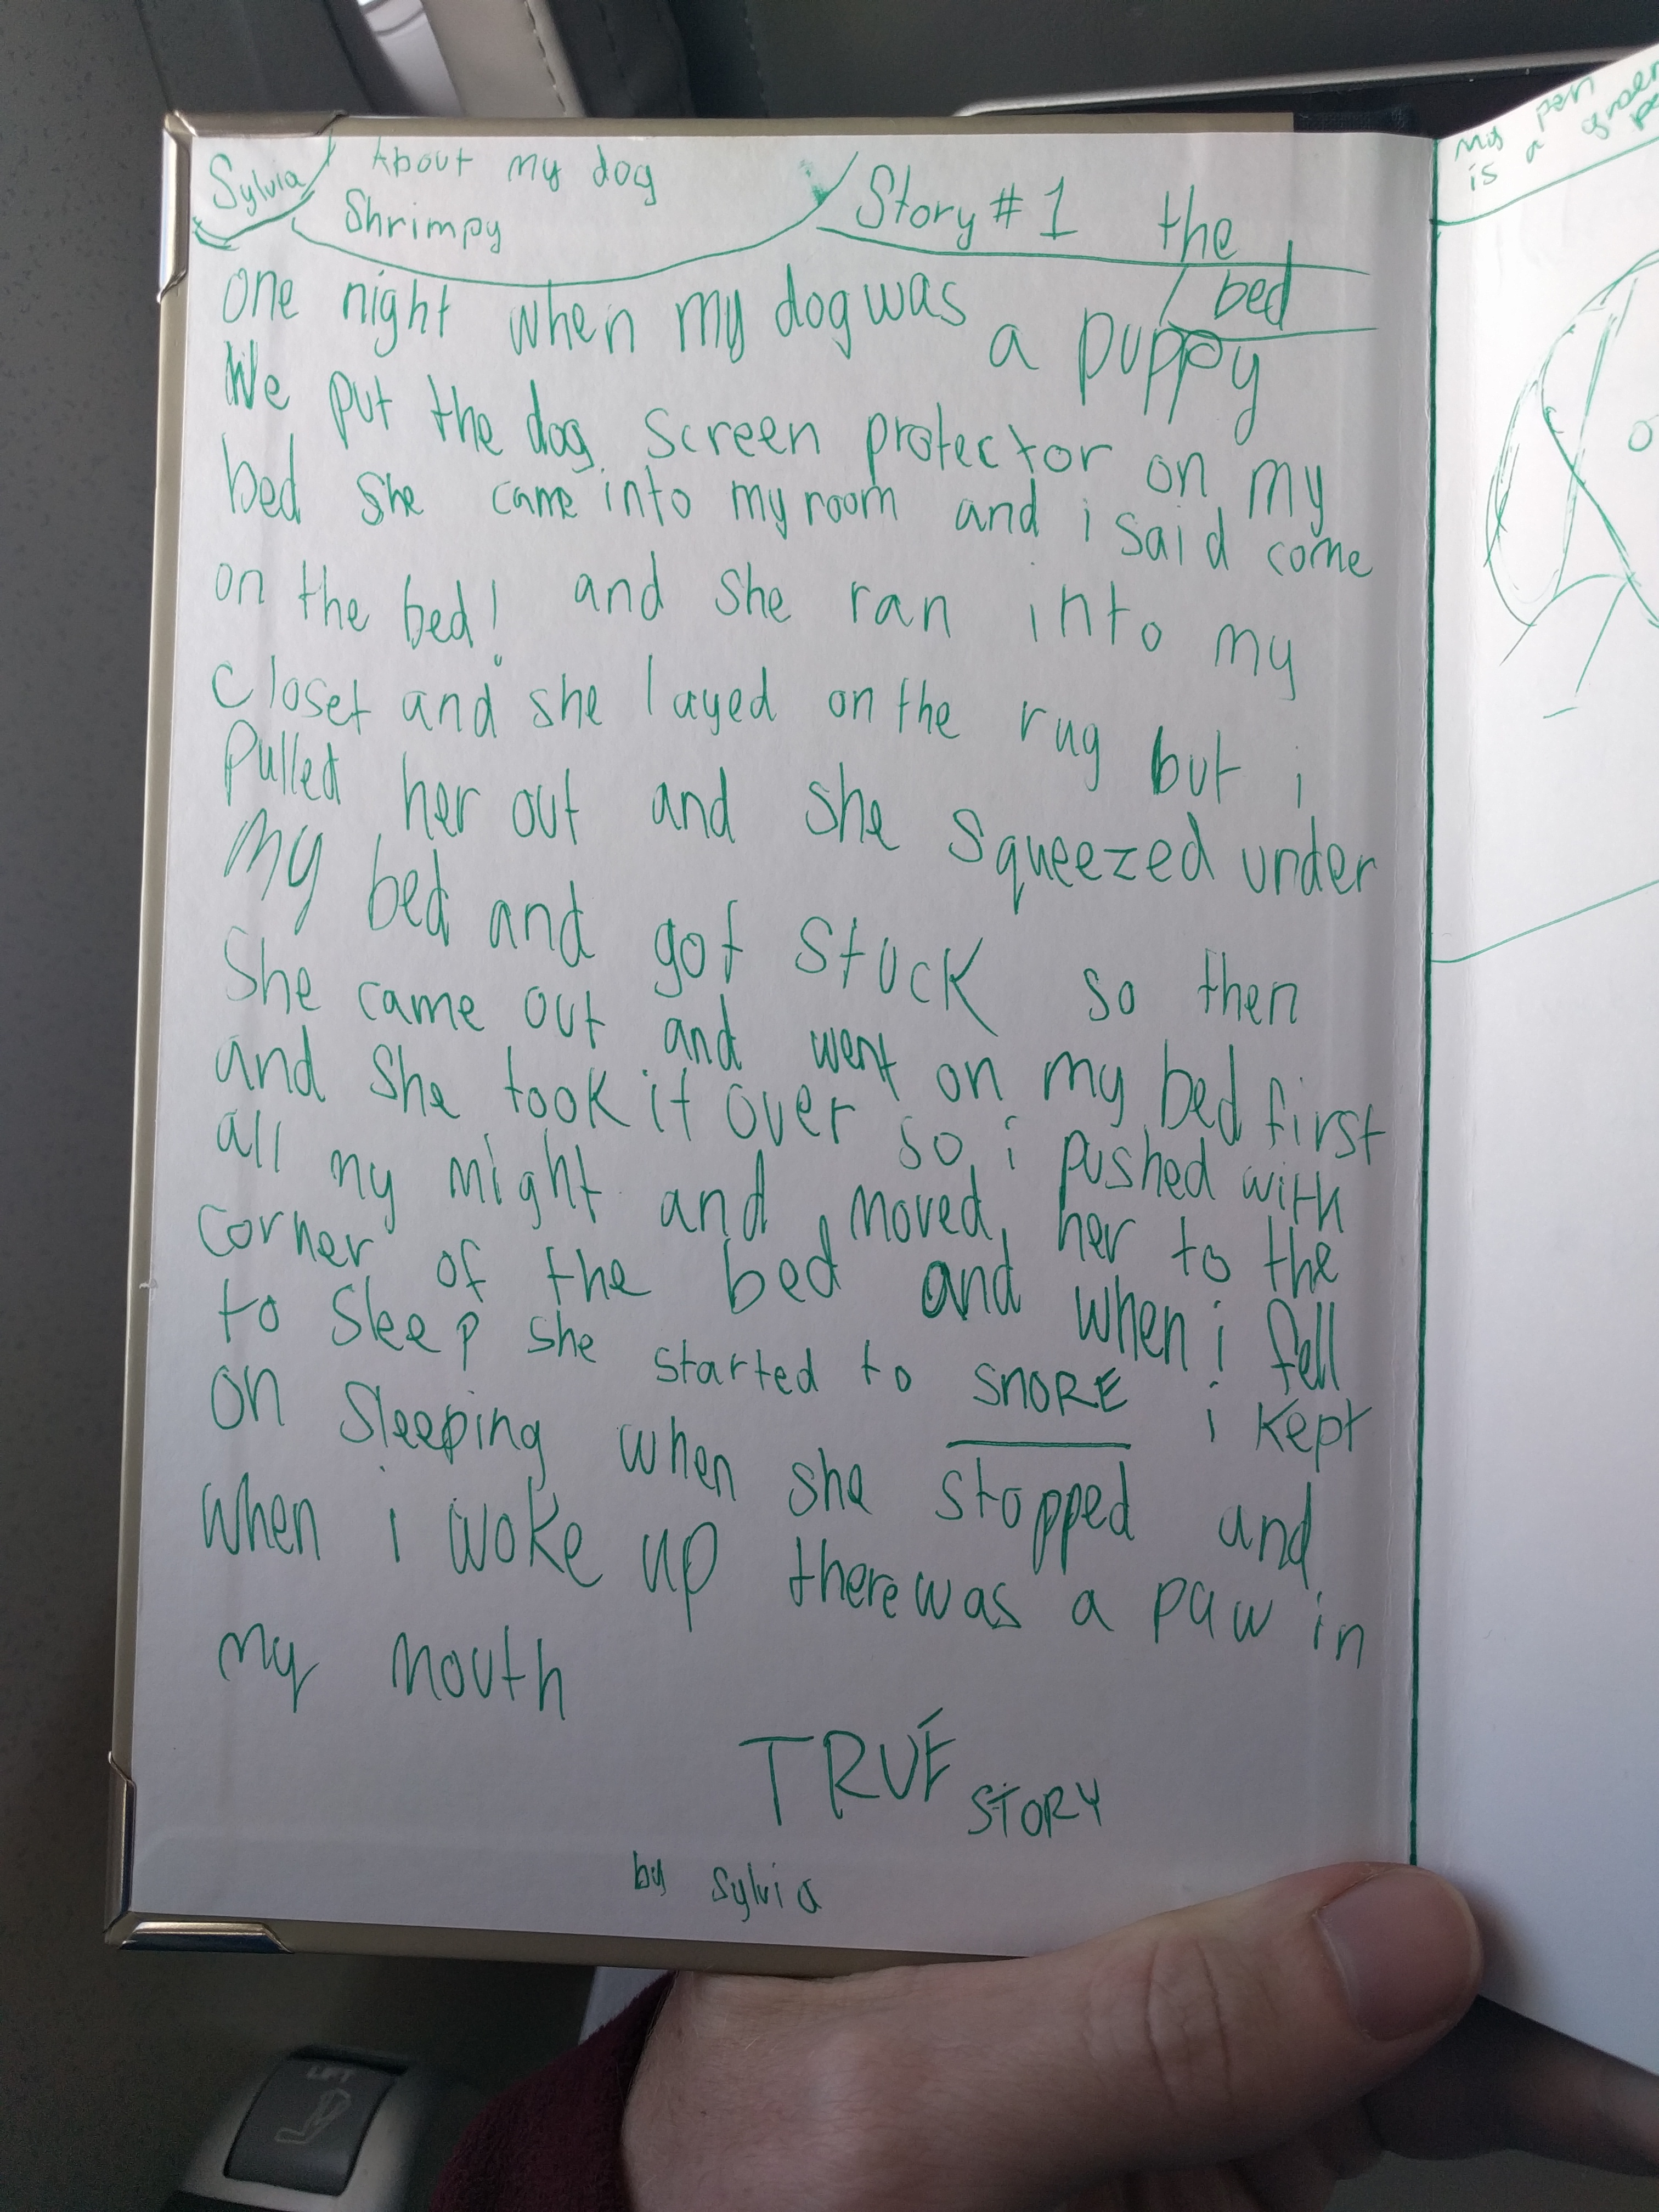 Sylvia
About my dog
Shrimpy
Story #1 the
bed
one night when my dog was a puppy
We put the dog screen protector on my
bed she came into my room and i said come
on the bed! and she ran into my
closet and she layed on the rug but i
pulled her out and she squeezed under
my bed and got stuck so then
she came out and went on my bed first
and she took it over so i pushed with
all my might and moved her to the
corner of the bed and when i fell
to sleep she started to SNORE i kept
on sleeping when she stopped and
when i woke up there was a paw in
my mouth
TRUE STORY
by Sylvia
pen
is a green